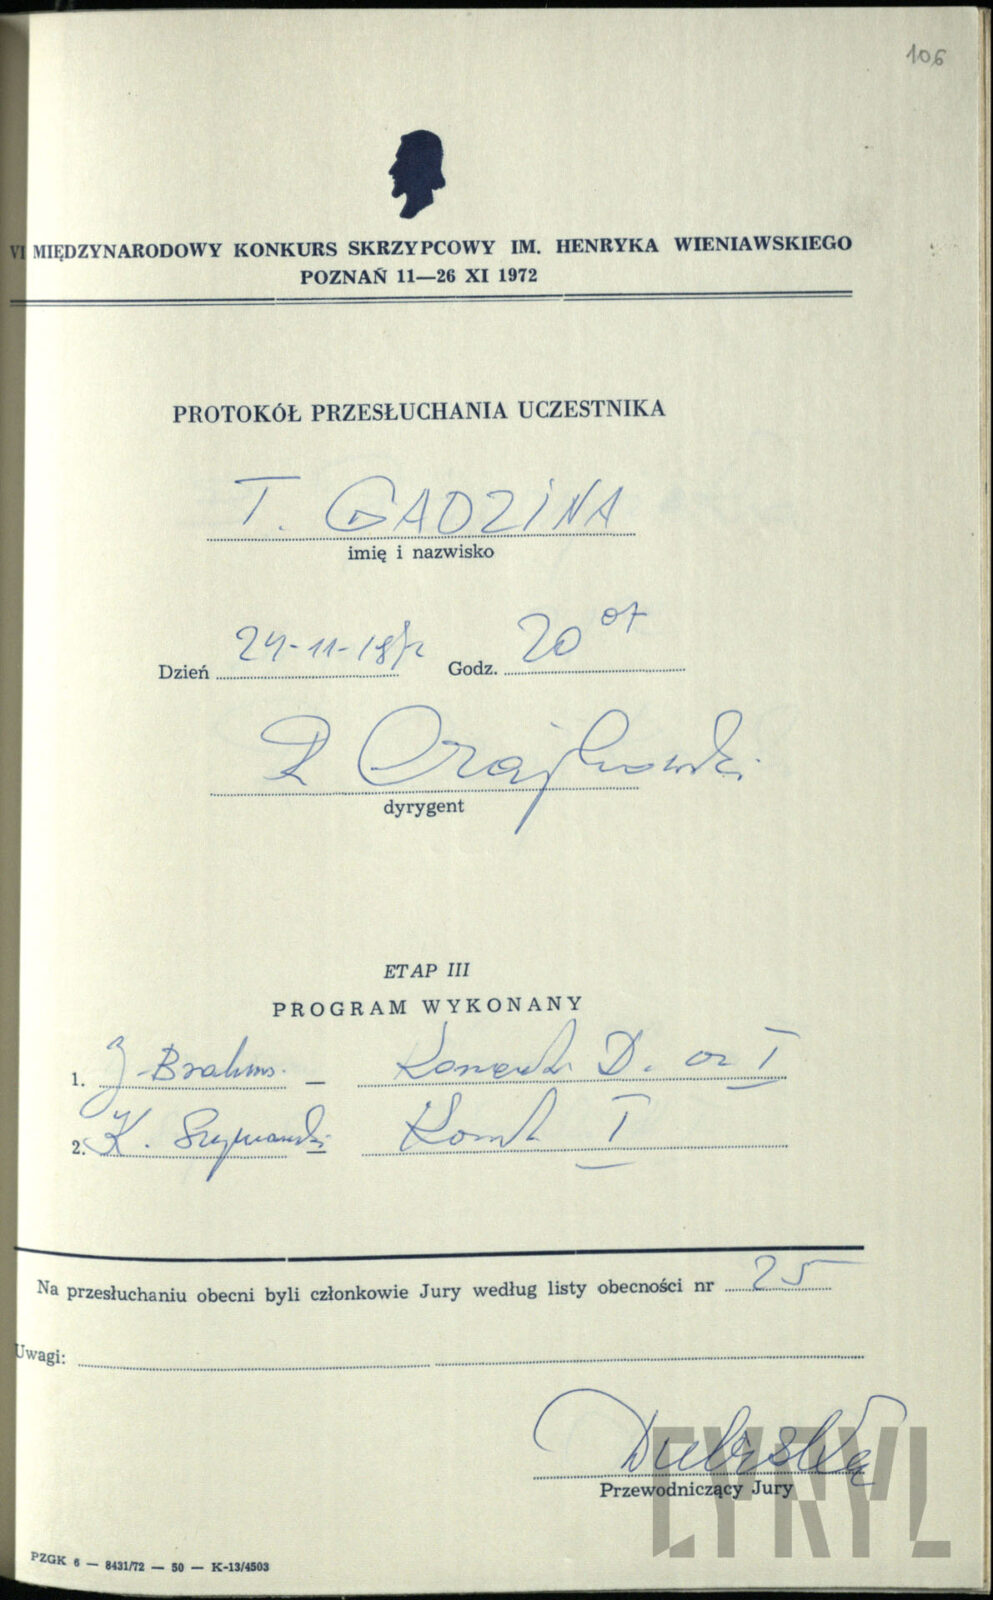 106
VI MIĘDZYNARODOWY KONKURS SKRZYPCOWY IM. HENRYKA WIENIAWSKIEGO
POZNAŃ 11—26 XI 1972
PROTOKÓŁ PRZESŁUCHANIA UCZESTNIKA
T. GADZINA
imię i nazwisko
Dzień 24-11-1972 Godz. 20 07
R Czajkowski
dyrygent
ETAP III
PROGRAM WYKONANY
1. J Brahms. — D. I
2. K. — I
Na przesłuchaniu obecni byli członkowie Jury według listy obecności nr 25
Uwagi:
Dubiska
Przewodniczący Jury
CYRYL
PZGK 6 — 8431/72 — 50 — K-13/4503